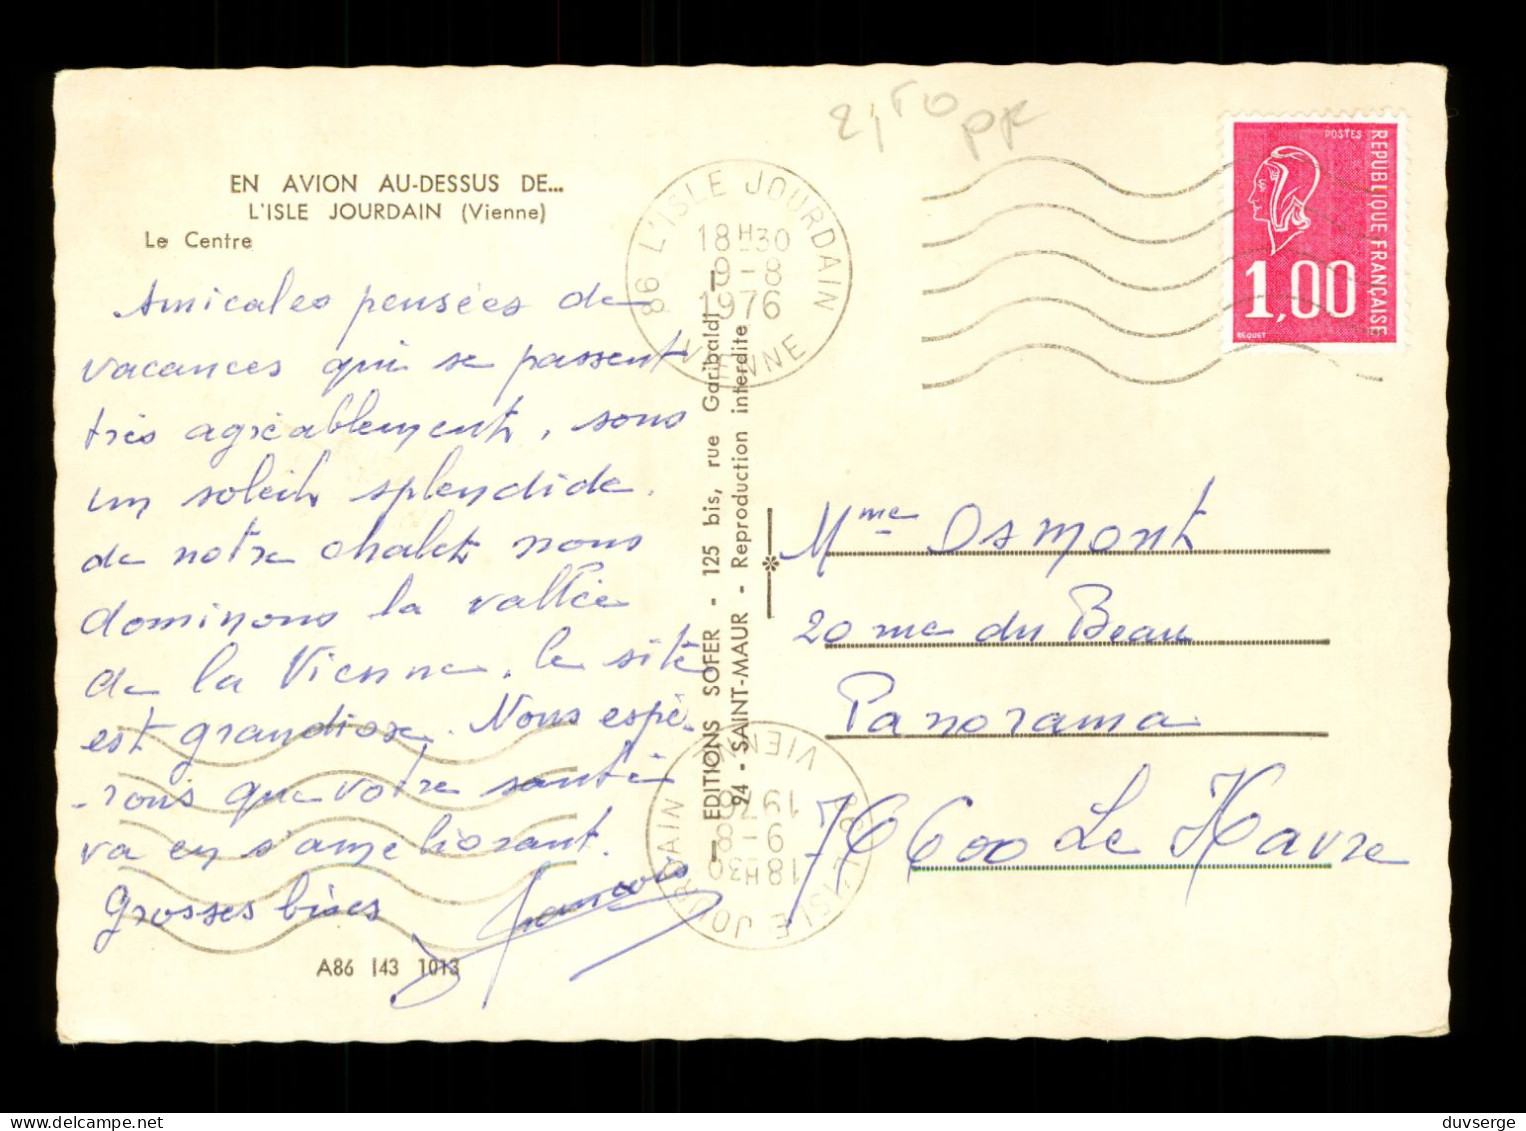 2,50 pr
EN AVION AU-DESSUS DE...
L'ISLE JOURDAIN (Vienne)
Le Centre
Amicales pensées de
vacances qui se passent
très agréablement, sous
un soleil splendide.
de notre chalet nous
dominons la vallée
de la Vienne, le site
est grandiose. Nous espé-
-rons que votre santé
va en s'améliorant.
Grosses bises
François
A86 143 1013
EDITIONS SOFER - 125 bis, rue Garibaldi
94 - SAINT-MAUR - Reproduction interdite
86 L'ISLE JOURDAIN
18H30
9-8
1976
VIENNE
POSTES
REPUBLIQUE FRANÇAISE
1,00
BEQUET
Mme Osmont
20 rue du Beau
Panorama
76600 Le Havre
86 L'ISLE JOURDAIN
18H30
9-8
1976
VIENNE
duvserge